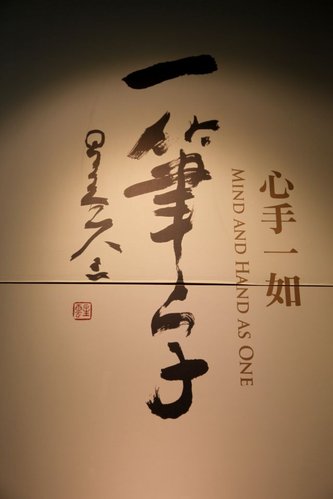 心手一如
MIND AND HAND AS ONE
一筆字